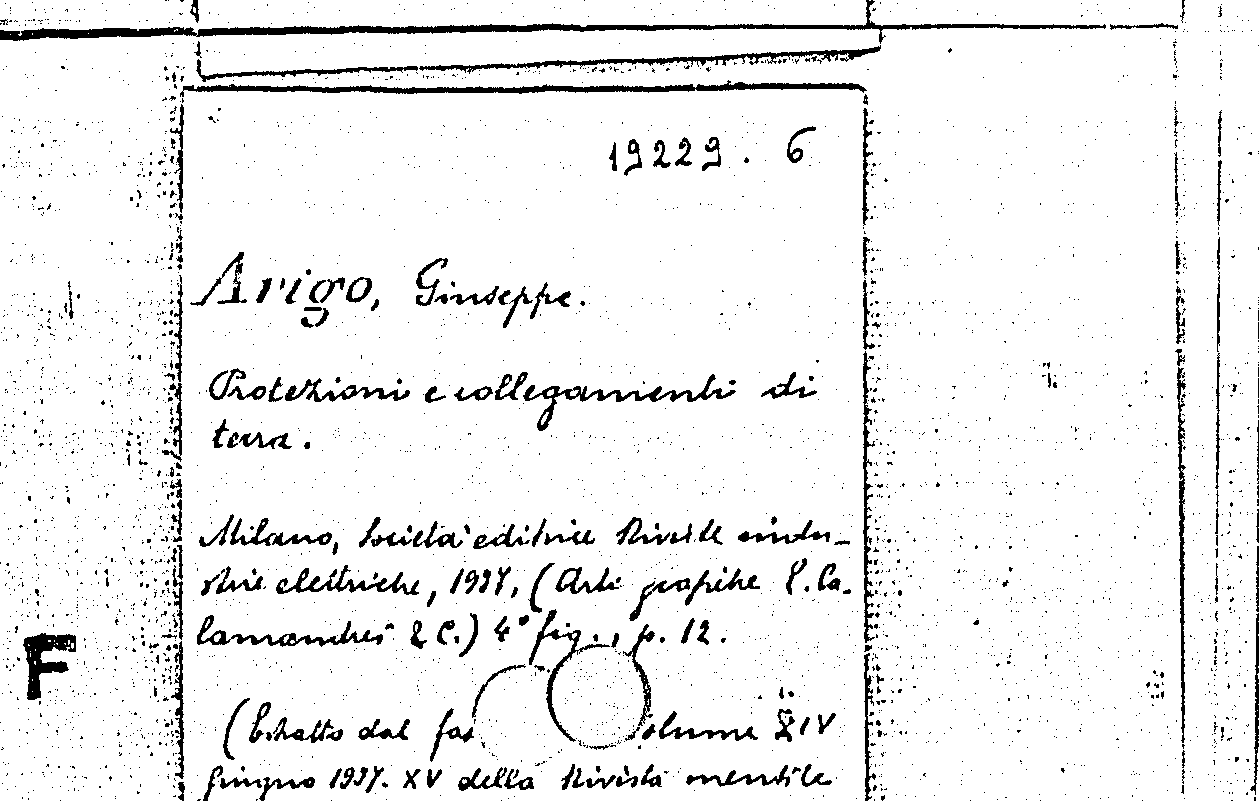 19229. 6
Arigo, Giuseppe.
Protezioni e collegamenti di
terra.
Milano, Società editrice Riviste indu-
strie elettriche, 1937. (Arti grafiche P. Ca-
lamandrei & C.) 4° fig., p. 12.
F
(Estratto dal XIV
Giugno 1937. XV della Rivista mensile